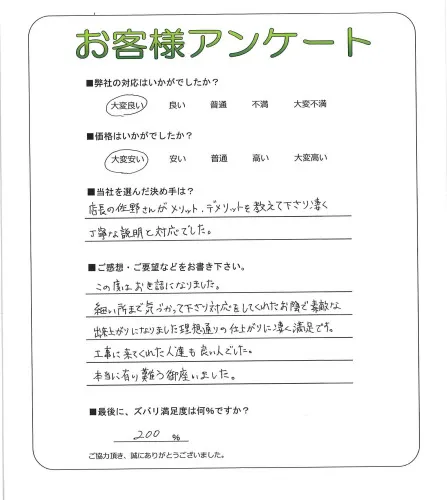 お客様アンケート
■弊社の対応はいかがでしたか？
大変良い 良い 普通 不満 大変不満
■価格はいかがでしたか？
大変安い 安い 普通 高い 大変高い
■当社を選んだ決め手は？
店長の佐野さんがメリット、デメリットを教えて下さり凄く
丁寧な説明と対応でした。
■ご感想・ご要望などをお書き下さい。
この度はお世話になりました。
細い所まで気づかって下さり対応をしてくれたお陰で素敵な
出来上がりになりました理想通りの仕上がりに凄く満足です。
工事に来てくれた人達も良い人でした。
本当に有り難う御座いました。
■最後に、ズバリ満足度は何％ですか？
200 ％
ご協力頂き、誠にありがとうございました。